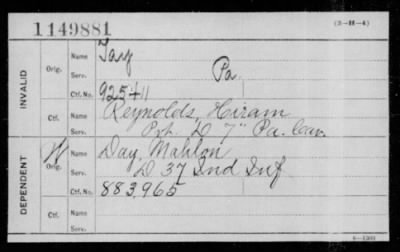 (3-H-4)
1149881
INVALID
Orig.
Name
Serv. Pa.
Ctf. No. 92541
Ctf.
Name Reynolds, Hiram
Serv. Pvt. "D" 7" Pa. Cav.
DEPENDENT
W
Orig.
Name Day, Mahlon
Serv. D 37 Ind Inf
Ctf. No. 883,965
Ctf.
Name
Serv.